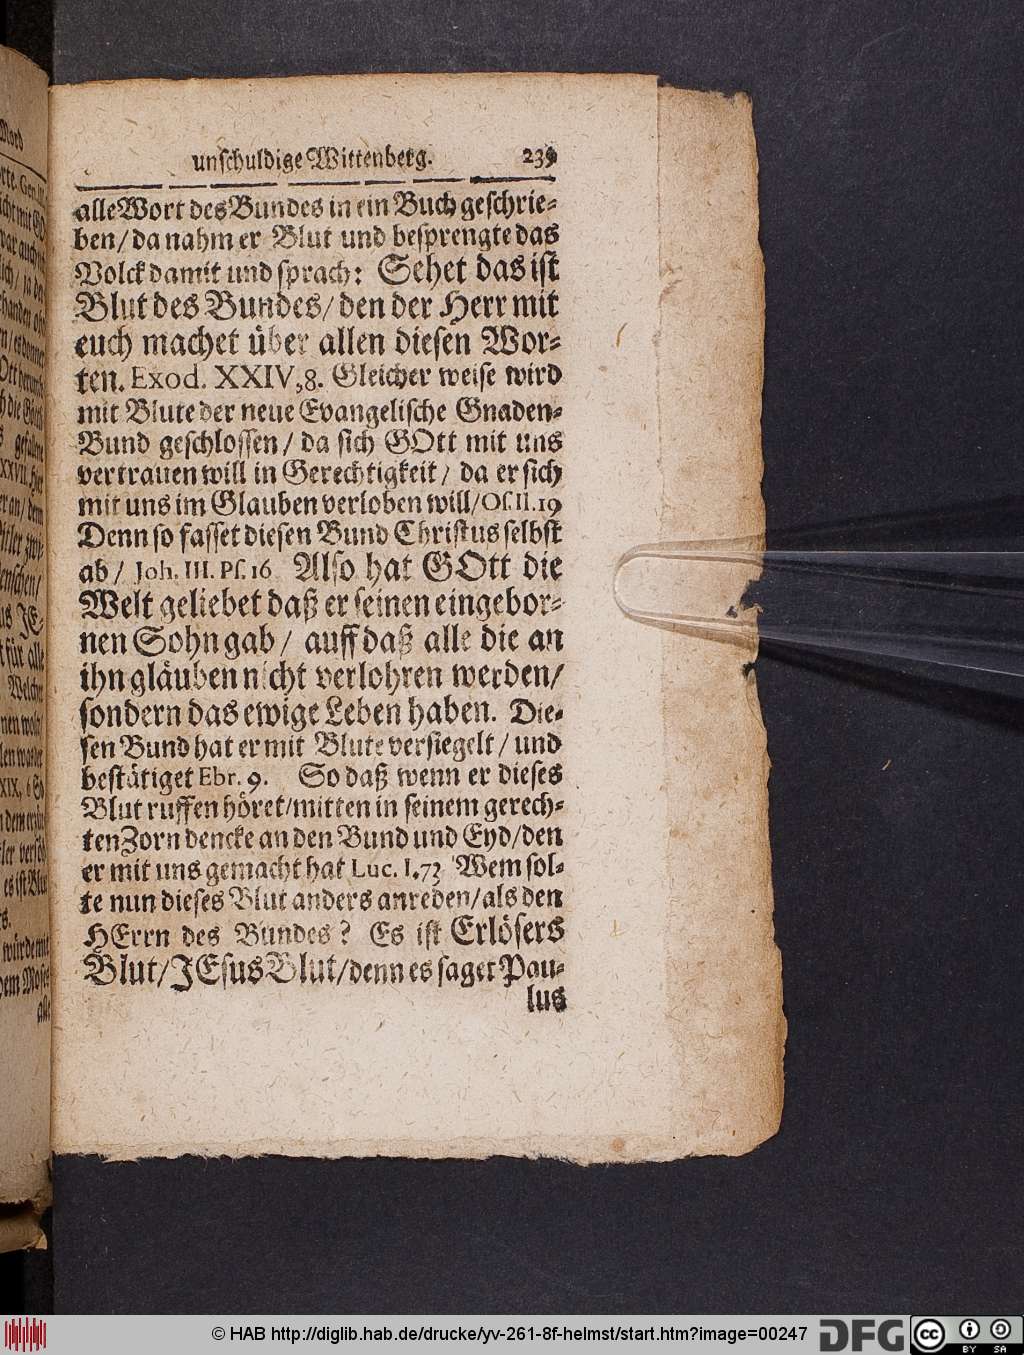 unschuldige Wittenberg. 239
alle Wort des Bundes in ein Buch geschrie-
ben/ da nahm er Blut und besprengte das
Volck damit und sprach: Sehet das ist
Blut des Bundes/ den der Herr mit
euch machet über allen diesen Wor-
ten. Exod. XXIV, 8. Gleicher weise wird
mit Blute der neue Evangelische Gnaden-
Bund geschlossen/ da sich GOtt mit uns
vertrauen will in Gerechtigkeit/ da er sich
mit uns im Glauben verloben will/ Os. II. 19
Denn so fasset diesen Bund Christus selbst
ab/ Joh. III. Ps. 16 Also hat GOtt die
Welt geliebet daß er seinen eingebor-
nen Sohn gab/ auff daß alle die an
ihn gläuben nicht verlohren werden/
sondern das ewige Leben haben. Die-
sen Bund hat er mit Blute versiegelt/ und
bestätiget Ebr. 9. So daß wenn er dieses
Blut ruffen höret/ mitten in seinem gerech-
ten Zorn dencke an den Bund und Eyd/ den
er mit uns gemacht hat Luc. I. 73 Wem sol-
te nun dieses Blut anders anreden/ als den
HErrn des Bundes? Es ist Erlösers
Blut/ JEsus Blut/ denn es saget Pau-
lus
© HAB http://diglib.hab.de/drucke/yv-261-8f-helmst/start.htm?image=00247
DFG
cc BY SA